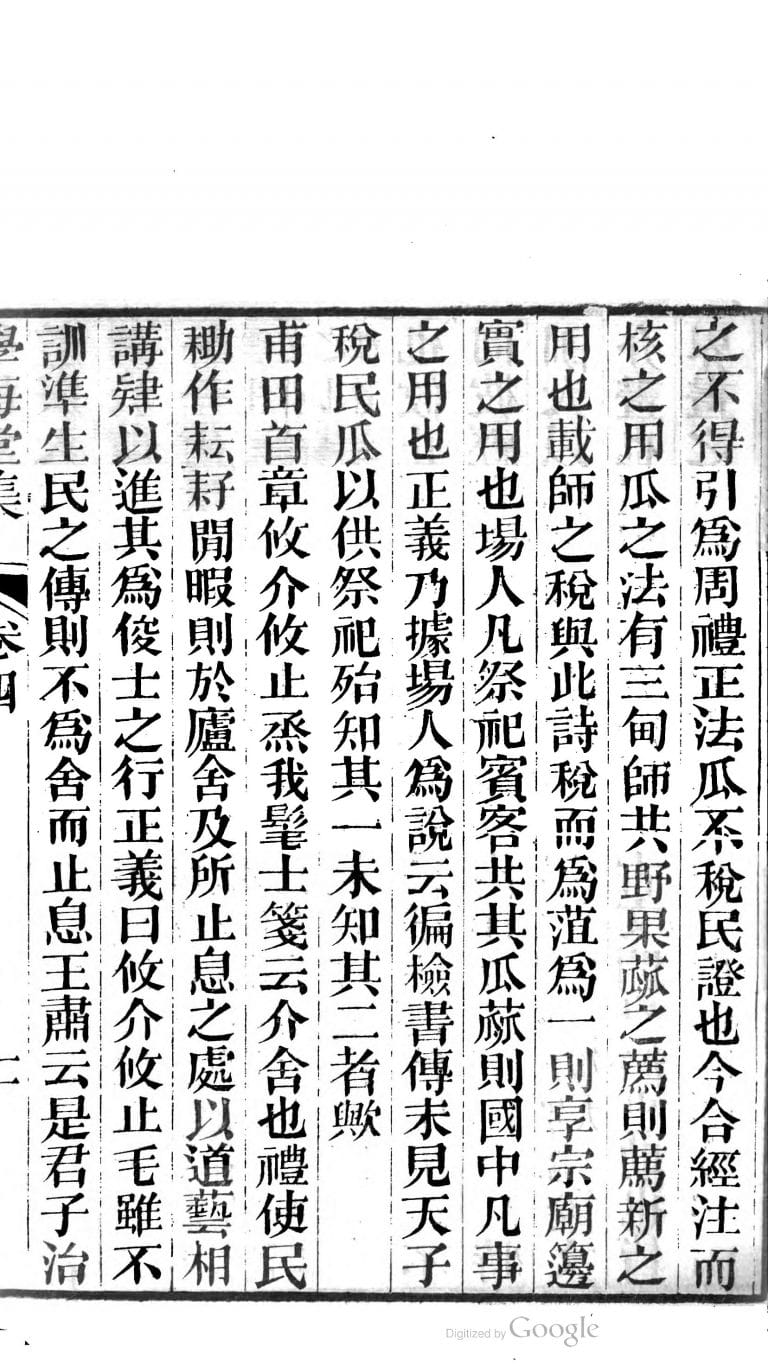 之不得引爲周禮正法瓜不稅民證也今合經注而
核之用瓜之法有三甸師共野果蓏之薦則薦新之
用也載師之稅與此詩稅而爲菹爲一則享宗廟籩
實之用也場人凡祭祀賓客共其瓜蓏則國中凡事
之用也正義乃據場人爲說云徧檢書傳未見天子
稅民瓜以供祭祀殆知其一未知其二者歟
甫田首章攸介攸止烝我髦士箋云介舍也禮使民
耡作耘耔閒暇則於廬舍及所止息之處以道藝相
講肄以進其爲俊士之行正義曰攸介攸止毛雖不
訓準生民之傳則不爲舍而止息王肅云是君子治
學海堂集 卷四
Digitized by Google